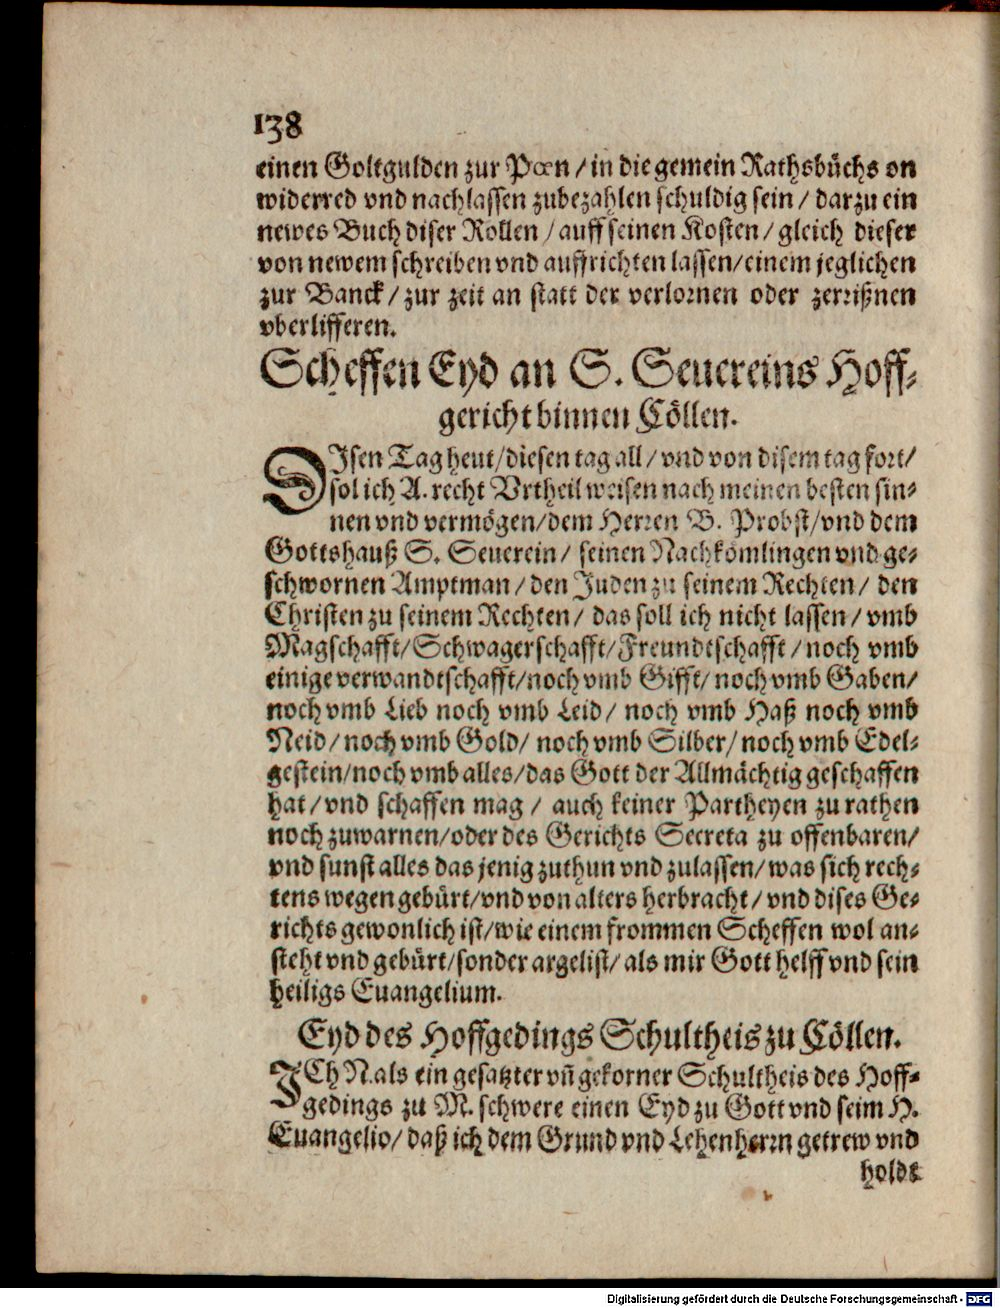 138
einen Goltgulden zur Pœn / in die gemein Rathsbüchs on
widerred vnd nachlassen zubezahlen schuldig sein / darzu ein
newes Buch diser Rollen / auff seinen Kosten / gleich dieser
von newem schreiben vnd auffrichten lassen/einem jeglichen
zur Banck / zur zeit an statt der verlornen oder zerrißnen
vberlifferen.
Scheffen Eyd an S. Seuereins Hoff-
gericht binnen Cöllen.
DIsen Tag heut/diesen tag all / vnd von disem tag fort/
sol ich A. recht Vrtheil weisen nach meinen besten sin-
nen vnd vermögen/dem Herren B. Probst/vnd dem
Gottshauß S. Seuerein / seinen Nachkömlingen vnd ge-
schwornen Amptman / den Juden zu seinem Rechten / den
Christen zu seinem Rechten / das soll ich nicht lassen / vmb
Magschafft/Schwagerschafft/Freundtschafft / noch vmb
einige verwandtschafft/noch vmb Gifft/ noch vmb Gaben/
noch vmb Lieb noch vmb Leid / noch vmb Haß noch vmb
Neid / noch vmb Gold/ noch vmb Silber/ noch vmb Edel-
gestein/noch vmb alles/das Gott der Allmächtig geschaffen
hat / vnd schaffen mag / auch keiner Partheyen zu rathen
noch zuwarnen/oder des Gerichts Secreta zu offenbaren/
vnd sunst alles das jenig zuthun vnd zulassen/ was sich rech-
tens wegen gebürt/vnd von alters herbracht / vnd dises Ge-
richts gewonlich ist/wie einem frommen Scheffen wol an-
steht vnd gebürt/sonder argelist/ als mir Gott helff vnd sein
heiligs Euangelium.
Eyd des Hoffgedings Schultheis zu Cöllen.
ICh N. als ein gesatzter vñ gekorner Schultheis des Hoff-
gedings zu M. schwere einen Eyd zu Gott vnd seim H.
Euangelio/ daß ich dem Grund vnd Lehenherrn getrew vnd
holdt
Digitalisierung gefördert durch die Deutsche Forschungsgemeinschaft - DFG